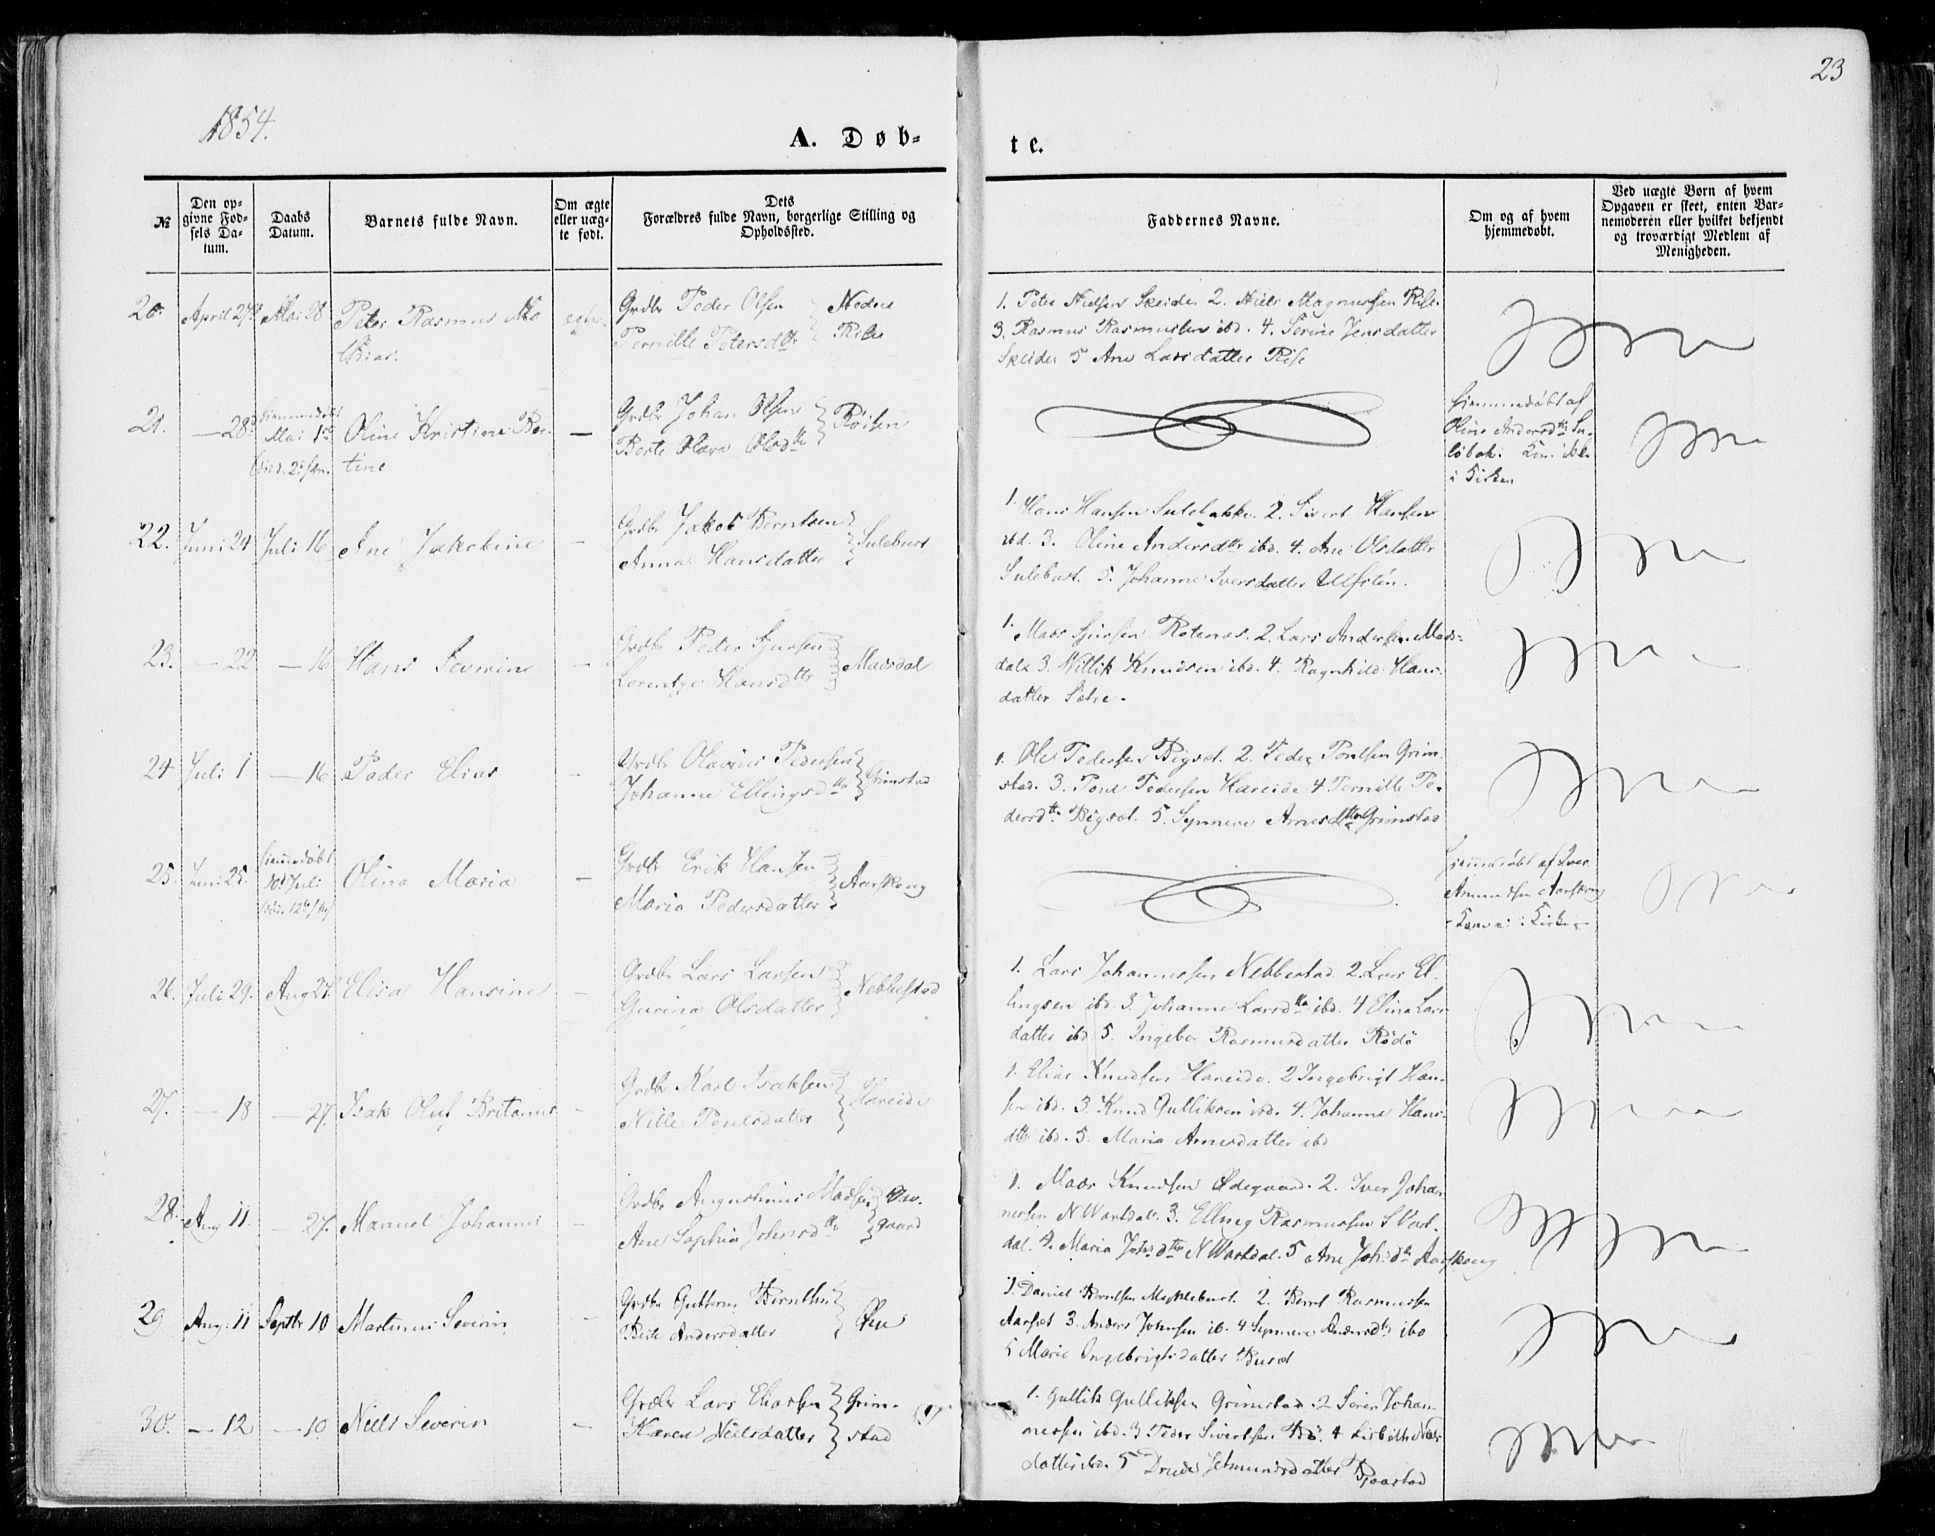 23
1854.
A. Døb-
te.
№
Den op-
givne Fød-
sels Da-
tum.
Daabs
Datum.
Barnets fulde Navn.
Om ægte
eller uæg-
te født.
Dets
Forældres fulde Navn, borgerlige Stilling og
Opholdssted.
Faddernes Navne.
Om og af hvem
hjemmedøbt.
Ved uægte Børn af hvem
Opgaven er skeet, enten Bar-
nemoderen eller hvilket bekjendt
og troværdigt Medlem af
Menigheden.
20. April 27 Mai 28 Peter Rasmus
Grdbr Peder Olsen
Pernille Petersdtr
Nedre
Rise
1. Peter Nielsen Skeide. 2. Niels Magnussen Rise.
3. Rasmus Rasmussen ibd. 4. Serine Jensdatter
Skeide. 5 Ane Larsdatter Rise
21. — 28 Mai 1 Oline Kristine Ber-
tine
—
Grdbr Johan Olsen
Berte Olava Olsdtr
Röisen
Hjemmedøbt af
Oline Andersdtr
i Kirken
22. Juni 24 Juli 16 Ane Jakobine —
Grdbr Jakob Berntsen
Anna Hansdatter
Sulebust
1. Hans Hansen Sulebakke. 2. Sivert Hansen
ibd. 3. Oline Andersdtr ibd. 4. Ane Olsdatter
Sulebust. 5. Johanne Iversdatter Ulfstén.
23. — 22 — 16 Hans Severin —
Grdbr Peder Sjursen
Lorentze Hansdtr
Maasdal
1. Mads Sjursen Rotenas. 2. Lars Andersen Maas-
dal. 3. Willik Knudsen ibd. 4. Ragnhild Hans-
datter Sætre.
24 Juli 1 — 16 Peder Elias —
Grdbr Olavius Pedersen
Johanne Ellingsdtr
Grimstad
1. Ole Pedersen Bigset. 2. Peder Poulsen Grim-
stad. 3. Poul Pedersen Hareide 4 Pernille Pe-
dersdtr Bigset. 5. Synneve Arnesdtr Grimstad
25. Juni 25. 10 Juli Olina Maria —
Grdbr Erik Hansen
Maria Pedersdatter
Aarskoug
Hjemmedøbt af Iver
Amundsen Aarskoug
26. Juli 29. Aug 27. Elisa Hansine —
Grdbr Lars Larsen
Gurina Olsdatter
Nebbestad
1. Lars Johannessen Nebbestad 2. Lars El-
lingsen ibd. 3. Johanne Larsdtr ibd. 4 Elina Lars-
datter ibd 5. Ingebor Rasmusdatter Rödö
27. — 18 — 27. Isak Oluf Britanus —
Grdbr Karl Isaksen
Nille Poulsdatter
Hareide
1. Elias Knudsen Hareide. 2 Ingebrigt Han-
sen ibd. 3. Knud Gulliksen ibd. 4. Johanne Hans-
dtr ibd. 5. Maria Arnesdatter ibd
28. Aug 11. — 27. Manuel Johannes —
Grdbr Augustinus Madsen
Ane Sophia Johnsdtr
gaard
1. Mads Knudsen Ödegaard. 2. Iver Johan-
nessen N Wartdal. 3. Elling Rasmussen S Vart-
dal. 4. Maria Johsdtr N Wartdal. 5 Ane Johsdtr Aarskoug
29 Aug. 11 Septbr 10 Martinus Severin —
Grdbr Guttorm Berntsen
Berte Andersdatter
1. Daniel Berntsen Myklebust. 2. Bernt Rasmussen
Aarset 3. Anders Johnsen ib. 4 Synneve Andersdtr ibd
5 Marie Ingebrigtsdatter Buset
30. — 12 — 10. Niels Severin —
Grdbr Lars Eliassen
Karen Nielsdatter
Grim-
stad
1. Gullik Gulliksen Grimstad. 2 Sören Johan-
nessen ibd. 3 Peder Sivertsen Bö. 4 Lisbeth Niels-
datter ibd. 5 Jetmundsdatter Pjaastad